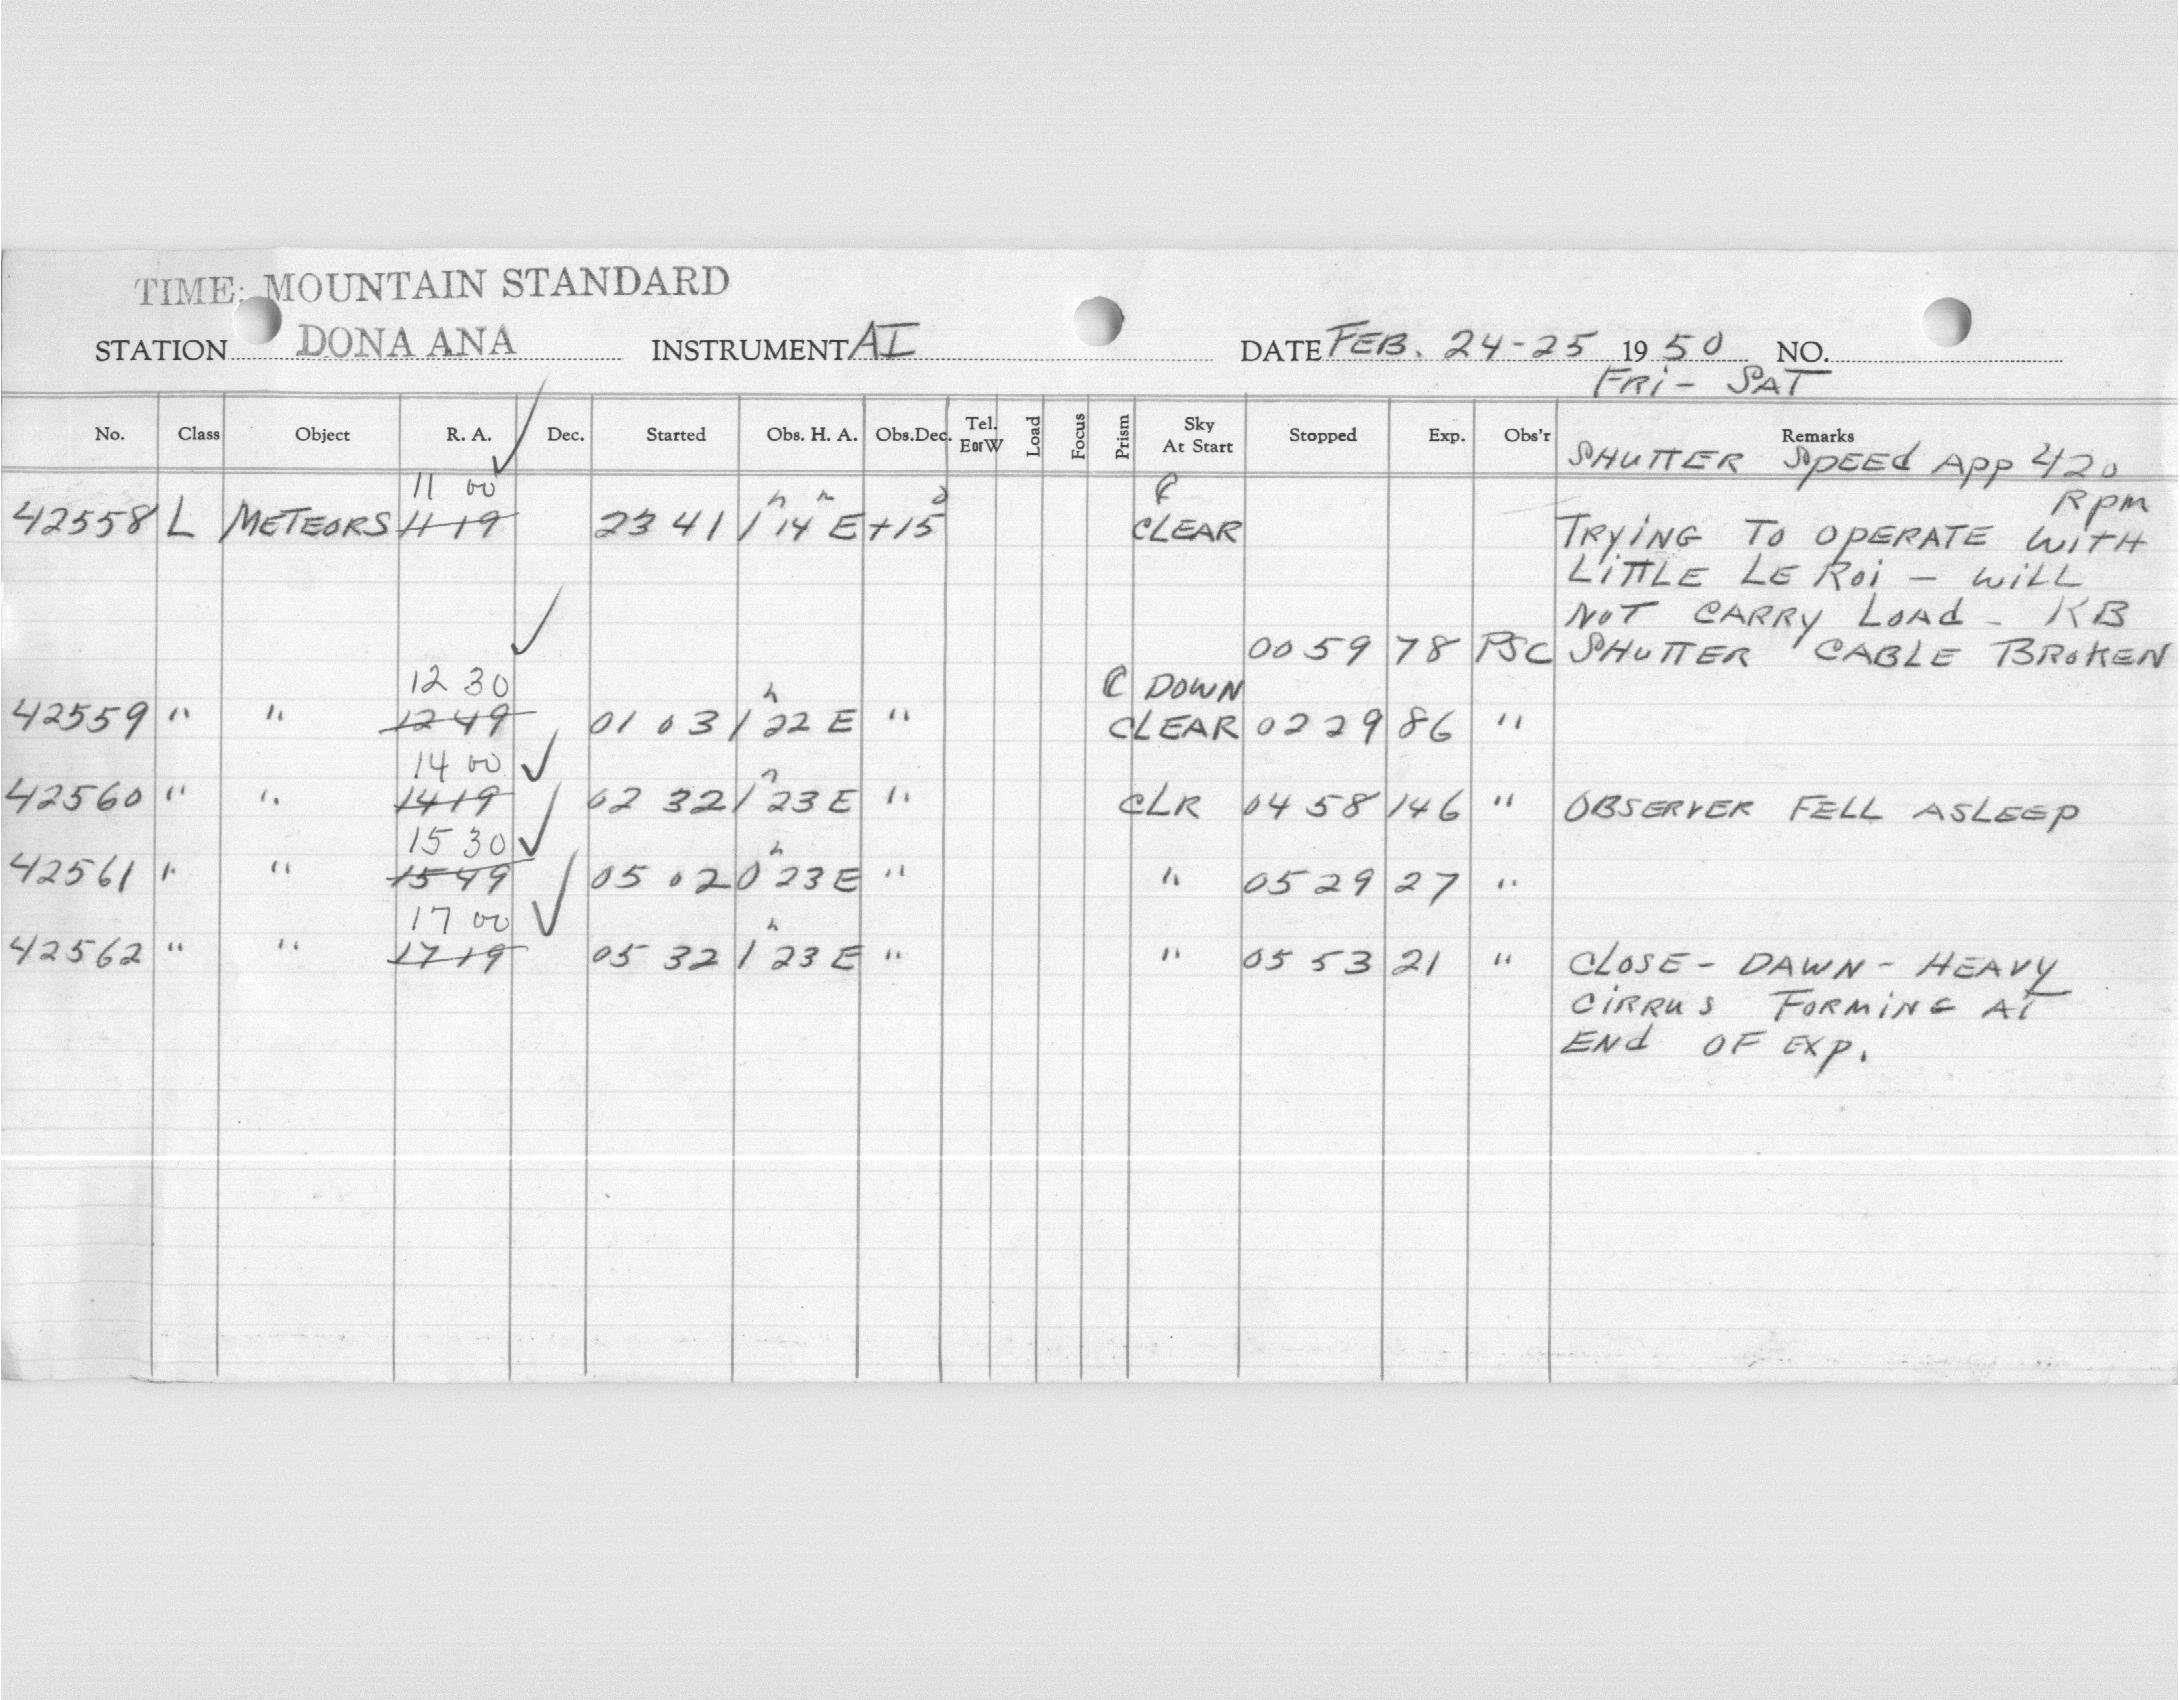 TIME: MOUNTAIN STANDARD
STATION DONA ANA INSTRUMENT AI DATE FEB. 24-25 1950 NO.
FRI - SAT
No. Class Object R. A. Dec. Started Obs. H. A. Obs. Dec. Tel. E or W Load Focus Prism Sky At Start Stopped Exp. Obs'r Remarks
SHUTTER SPEED APP 420
RPM
11 00
42558 L METEORS 11 19 23 41 1h 14m E +15° ☾ CLEAR
TRYING TO OPERATE WITH
LITTLE LE ROI - WILL
NOT CARRY LOAD - KB
00 59 78 PSC SHUTTER CABLE BROKEN
12 30 ☾ DOWN
42559 " " 12 49 01 03 1h 22 E " CLEAR 02 29 86 "
14 00
42560 " " 14 19 02 32 1h 23 E " CLR 04 58 146 " OBSERVER FELL ASLEEP
15 30
42561 " " 15 49 05 02 0h 23 E " " 05 29 27 "
17 00
42562 " " 17 19 05 32 1h 23 E " " 05 53 21 " CLOSE - DAWN - HEAVY
CIRRUS FORMING AT
END OF EXP.